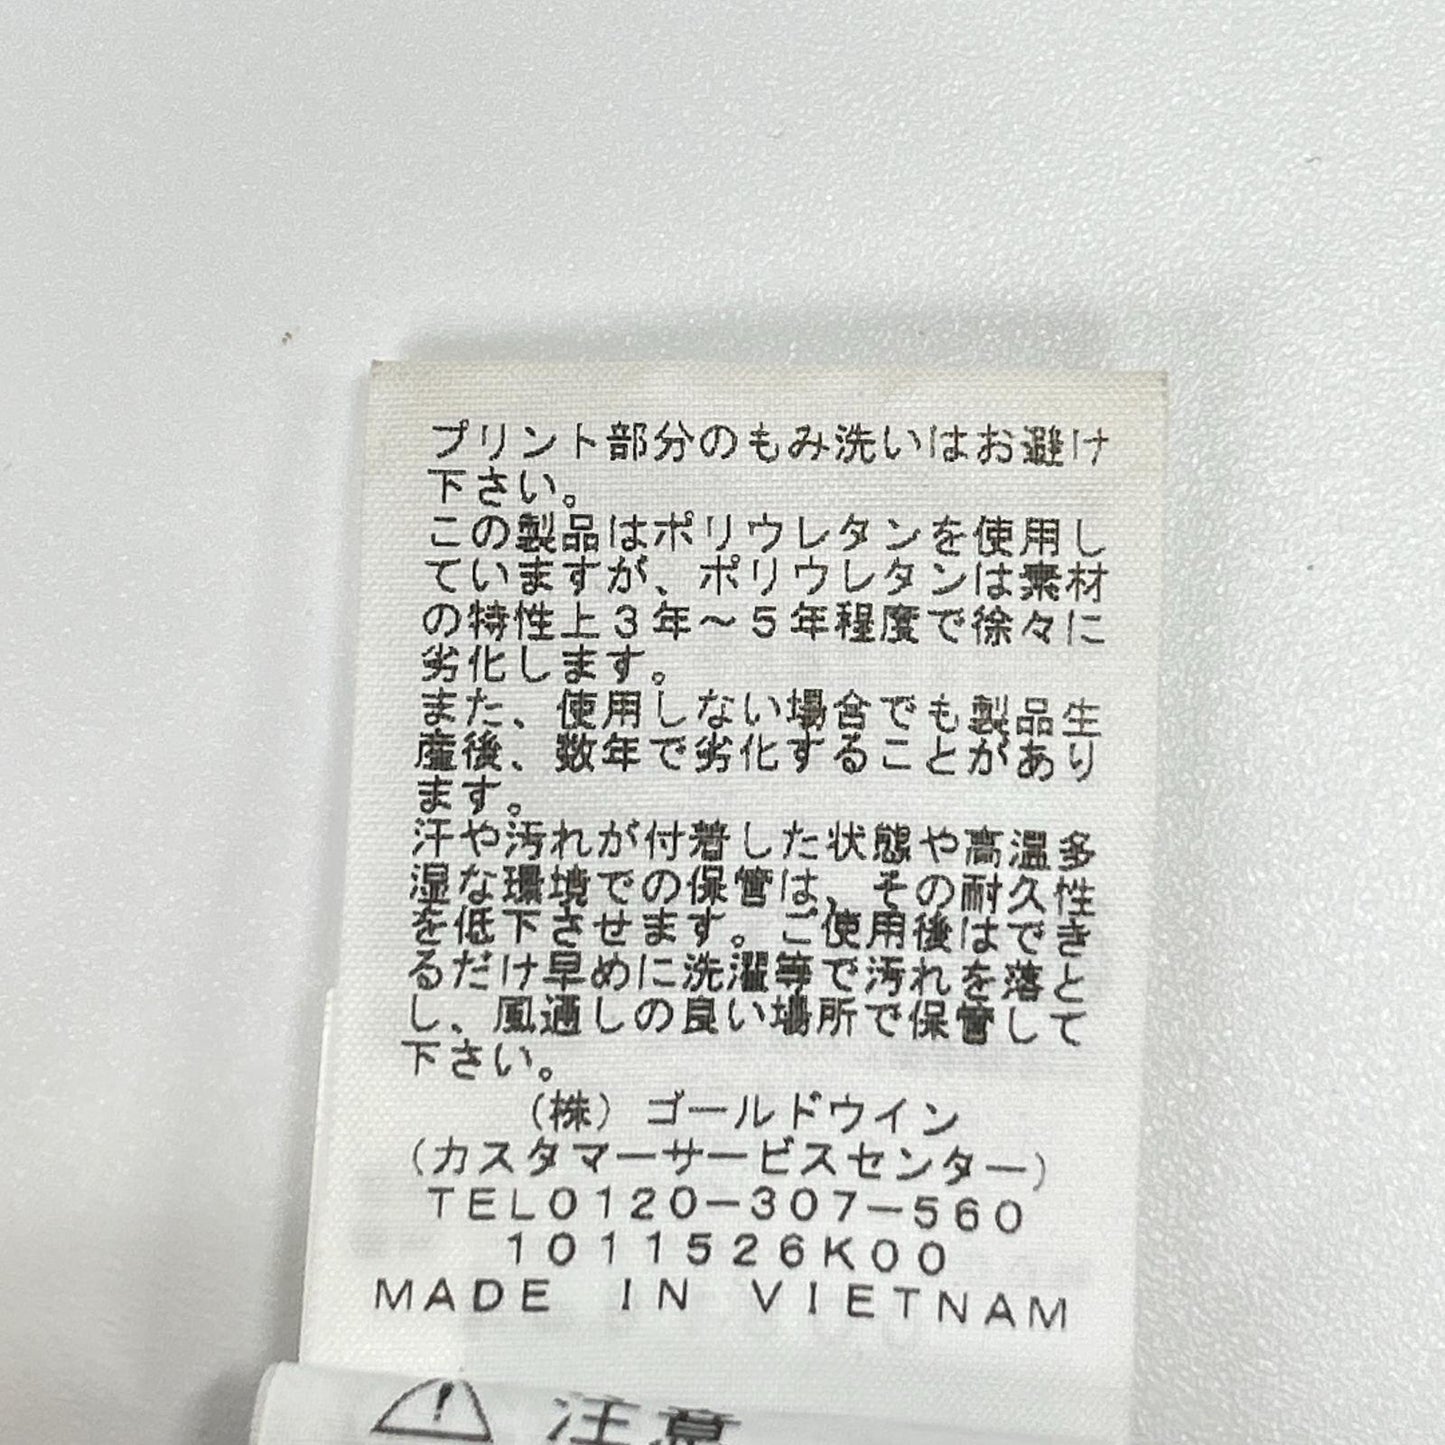 プリント部分のもみ洗いはお避け
下さい。
この製品はポリウレタンを使用し
ていますが、ポリウレタンは素材
の特性上3年～5年程度で徐々に
劣化します。
また、使用しない場合でも製品生
産後、数年で劣化することがあり
ます。
汗や汚れが付着した状態や高温多
湿な環境での保管は、その耐久性
を低下させます。ご使用後はでき
るだけ早めに洗濯等で汚れを落と
し、風通しの良い場所で保管して
下さい。
(株) ゴールドウイン
(カスタマーサービスセンター)
TEL0120-307-560
1011526K00
MADE IN VIETNAM
注意